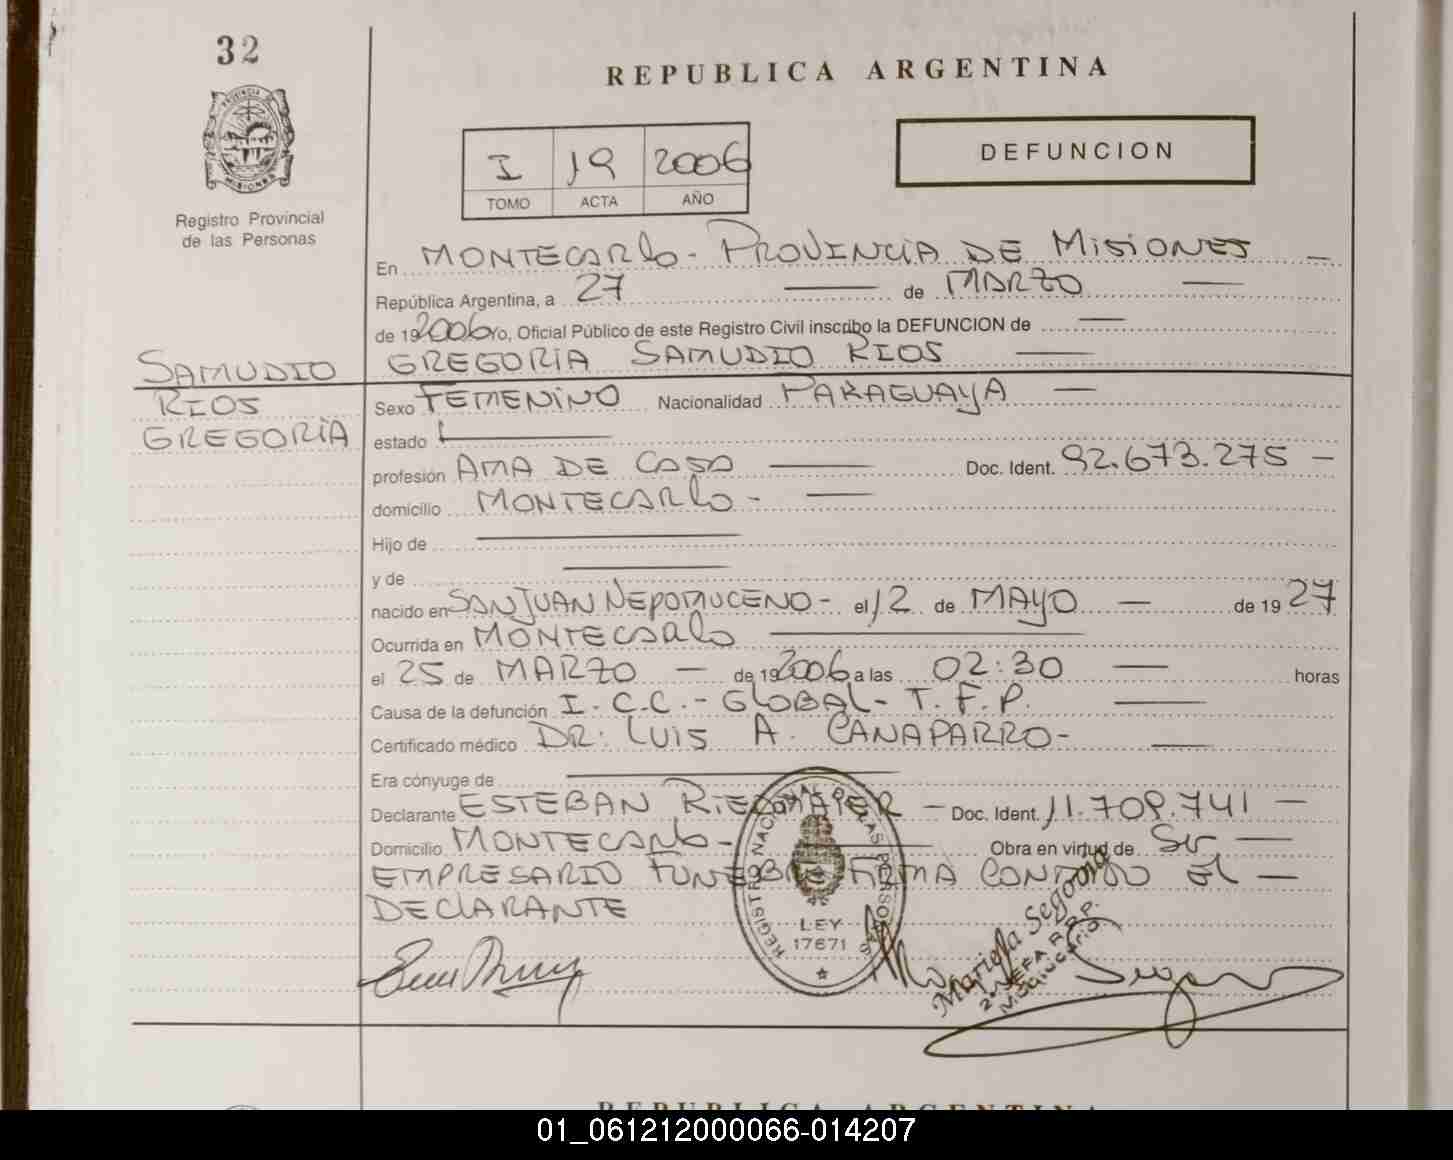 32
REPUBLICA ARGENTINA
PROVINCIA
MISIONES
Registro Provincial
de las Personas
I 19 2006
TOMO ACTA AÑO
DEFUNCION
En MONTECARLO - PROVINCIA DE MISIONES —
República Argentina, a 27 — de MARZO —
de 19 2006 Yo, Oficial Público de este Registro Civil inscribo la DEFUNCION de —
GREGORIA SAMUDIO RIOS —
SAMUDIO
RIOS
GREGORIA
Sexo FEMENINO Nacionalidad PARAGUAYA —
estado —
profesión AMA DE CASA — Doc. Ident. 92.673.275 —
domicilio MONTECARLO - —
Hijo de —
y de —
nacido en SAN JUAN NEPOMUCENO - el 12 de MAYO — de 19 27
Ocurrida en MONTECARLO —
el 25 de MARZO — de 19 2006 a las 02:30 — horas
Causa de la defunción I. C.C. - GLOBAL - T. F. P. —
Certificado médico DR: LUIS A. CANAPARRO - —
Era cónyuge de —
Declarante ESTEBAN — Doc. Ident. 11.709.741 —
Domicilio MONTECARLO - — Obra en virtud de SER —
EMPRESARIO FUNEBRE FIRMA CONMIGO EL —
DECLARANTE
REGISTRO NACIONAL DE LAS PERSONAS
LEY
17671
Mariela Segovia
2º JEFA R.P.P.
REPUBLICA ARGENTINA
01_061212000066-014207